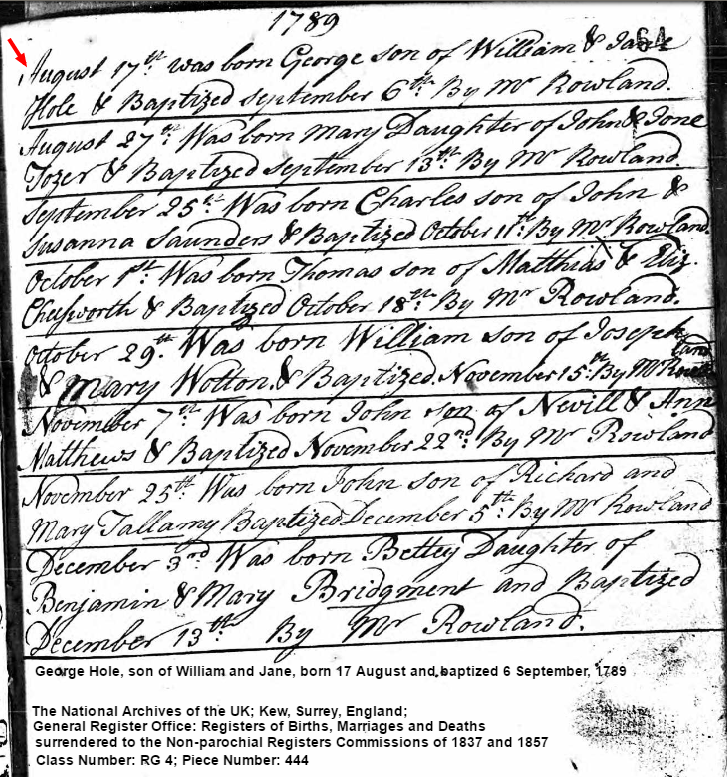 1789
64
August 17th was born George son of William & Jane
Hole & Baptized september 6th By Mr Rowland.
August 27th Was born Mary Daughter of John & Jone
Tozer & Baptized september 13th By Mr Rowland.
september 25th Was born Charles son of John &
Susanna Saunders & Baptized October 11th By Mr Rowland.
October 1st Was born Thomas son of Matthias & Eliz.
& Baptized October 18th By Mr Rowland.
October 29th Was born William son of Joseph
& Mary Wotton & Baptized November 15th By Mr Rowland
November 7th Was born John son of Nevill & Ann
Matthews & Baptized November 22nd By Mr Rowland
November 25th Was born John son of Richard and
Mary Tallamy Baptized December 5th By Mr Rowland
December 3rd Was born Bettey Daughter of
Benjamin & Mary Bridgment and Baptized
December 13th By Mr Rowland.
George Hole, son of William and Jane, born 17 August and baptized 6 September, 1789
The National Archives of the UK; Kew, Surrey, England;
General Register Office: Registers of Births, Marriages and Deaths
surrendered to the Non-parochial Registers Commissions of 1837 and 1857
Class Number: RG 4; Piece Number: 444